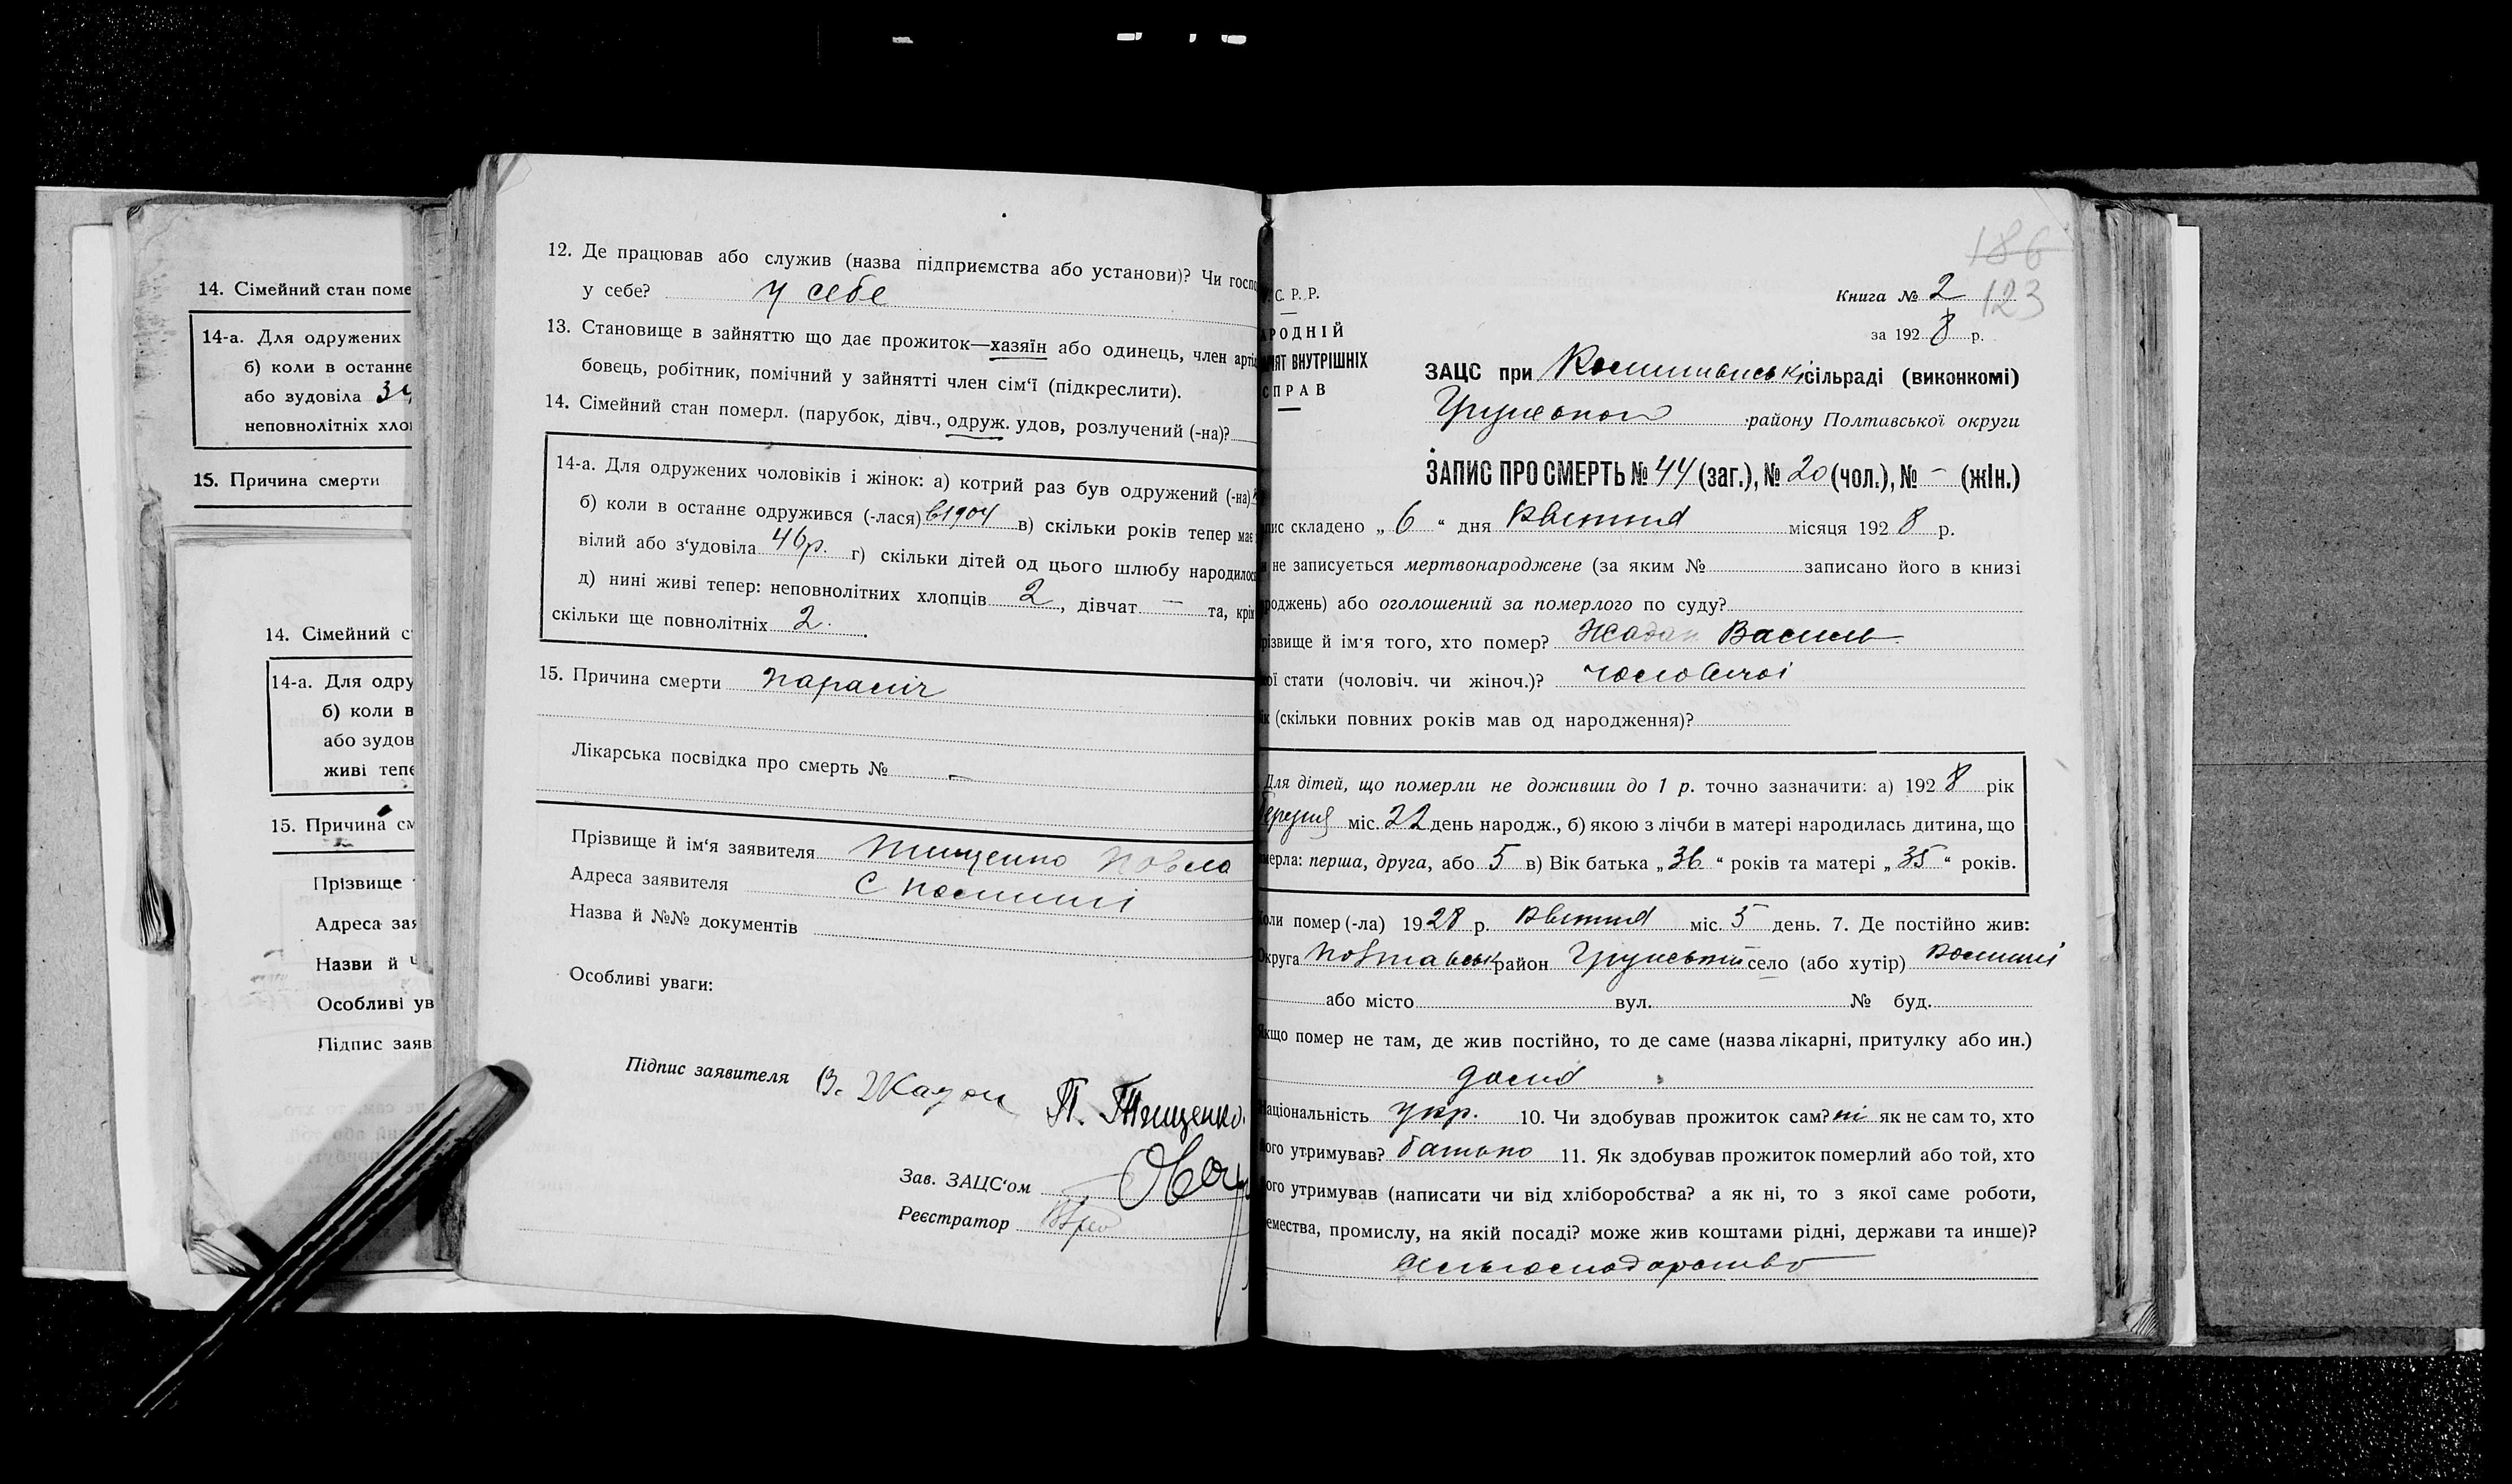 14. Сімейний стан поме
14-а. Для одружених
б) коли в останнє
або зудовіла
неповнолітніх хло
15. Причина смерти
14. Сімейний с
14-а. Для одру
б) коли в
або зудов
живі тепе
15. Причина см
Прізвище
Адреса зая
Назви й
Особливі ув
Підпис заяв
12. Де працював або служив (назва підприємства або установи)? Чи госп
у себе? у себе
13. Становище в зайняттю що дає прожиток—хазяїн або одинець, член арті
бовець, робітник, помічний у зайнятті член сім‘ї (підкреслити).
14. Сімейний стан померл. (парубок, дівч., одруж. удов, розлучений (-на)?
14-а. Для одружених чоловіків і жінок: а) котрий раз був одружений (-на)
б) коли в останнє одружився (-лася) в 1904 в) скільки років тепер має
вілий або з‘удовіла 46 р. г) скільки дітей од цього шлюбу народилос
д) нині живі тепер: неповнолітних хлопців 2, дівчат — та, крім
скільки ще повнолітніх 2.
15. Причина смерти параліч
Лікарська посвідка про смерть № —
Прізвище й ім‘я заявителя Тищенко Павло
Адреса заявителя с
Назва й №№ документів
Особливі уваги:
Підпис заявителя В. Жадан П. Тищенко.
Зав. ЗАЦС‘ом
Реєстратор
186
С. Р. Р.
Книга № 2 123
РОДНІЙ
за 1928 р.
ЯТ ВНУТРІШНІХ
СПРАВ
ЗАЦС при сільраді (виконкомі)
району Полтавської округи
ЗАПИС ПРО СМЕРТЬ № 44 (заг.), № 20 (чол.), № – (жін.)
пис складено „ 6 “ дня Квітня місяця 1928 р.
не записується мертвонароджене (за яким № записано його в книзі
роджень) або оголошений за померлого по суду?
різвище й ім‘я того, хто помер? Жадан Василь
ої стати (чоловіч. чи жіноч.)? чоловічої
ік (скільки повних років мав од народження)?
Для дітей, що померли не доживши до 1 р. точно зазначити: а) 1928 рік
березня міс. 22 день народж., б) якою з лічби в матері народилась дитина, що
мерла: перша, друга, або 5 в) Вік батька „ 36 “ років та матері „ 35 “ років.
оли помер (-ла) 1928 р. Квітня міс. 5 день. 7. Де постійно жив:
Округа Полтавськ район Грунський село (або хутір)
або місто вул. № буд.
Якщо помер не там, де жив постійно, то де саме (назва лікарні, притулку або ин.)
дома
Національність укр. 10. Чи здобував прожиток сам? ні як не сам то, хто
ого утримував? батько 11. Як здобував прожиток померлий або той, хто
ого утримував (написати чи від хліборобства? а як ні, то з якої саме роботи,
емества, промислу, на якій посаді? може жив коштами рідні, держави та инше)?
сільгосподарство